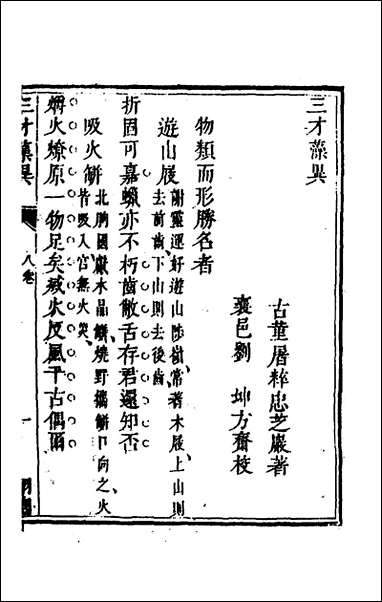 三才藻異
古董屠粹忠芝巖著
襄邑劉 坤方齋校
物類而形勝名者
遊山屐
謝靈運好遊山陟嶺、常著木屐、上山則
去前齒、下山則去後齒、
折固可嘉蠟亦不朽齒敝舌存君還知否
吸火缾
北胸國獻水晶缾、燒野攜缾口向之、火
皆吸入、宮無火災、
爝火燎原一物足矣滅火反風千古偶爾
三才藻異
八卷
一